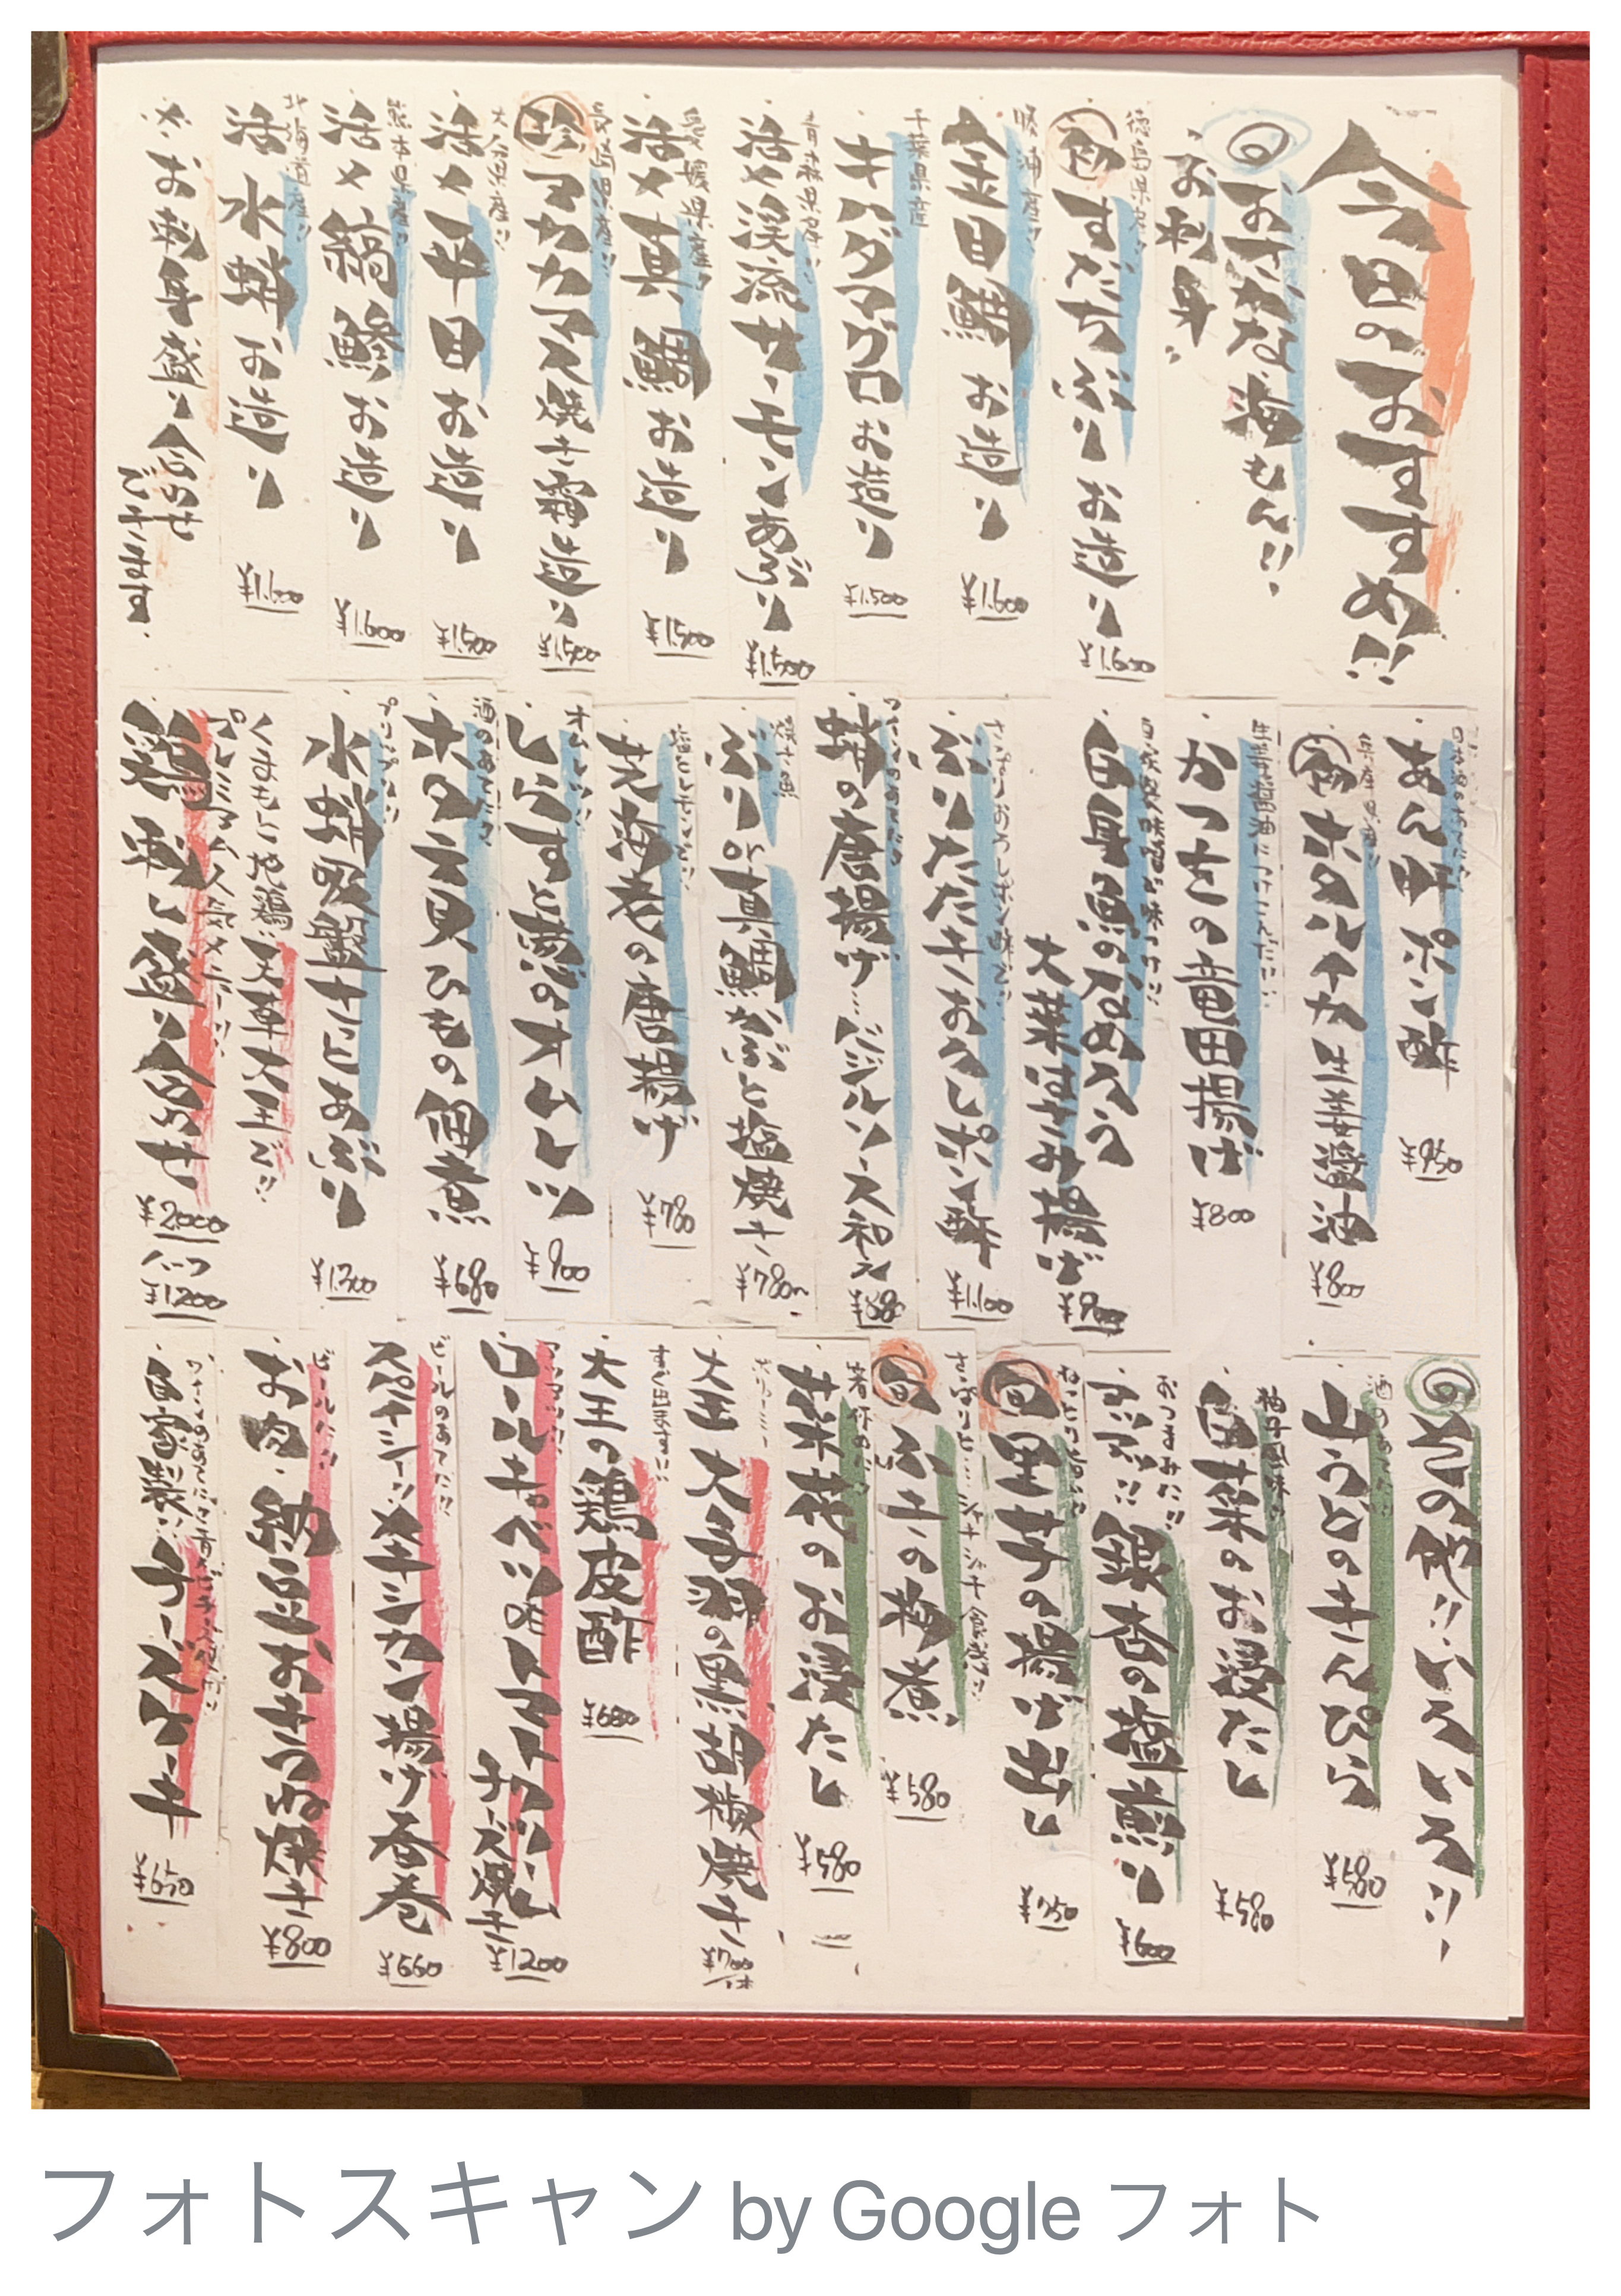 今日のおすすめ!!
旬 おさかな 海もん!!
お刺身
徳島県産!!
すだちぶり お造り
¥1.600
勝浦産!!
金目鯛 お造り
¥1.600
千葉県産
キハダマグロ お造り
¥1.500
青森県産!!
活〆渓流サーモン あぶり
¥1.500
愛媛県産!!
活〆真鯛 お造り
¥1.500
珍 マカカマス 焼き霜造り
¥1.500
大分県産!!
活〆平目 お造り
¥1.500
熊本県産!!
活〆縞鯵 お造り
¥1.600
北海道産!!
活水蛸 お造り
¥1.600
※お刺身盛り合わせ
ございます
日本酒のあてに!!
あん肝ポン酢
¥950
兵庫県産!!
ホタルイカ 生姜醤油
¥800
生姜醤油につけこんだ!!
かつをの竜田揚げ
¥800
白身魚のなめろう
大葉はさみ揚げ
¥900
さっぱりおろしポン酢で!!
ぶりたたき おろしポン酢
¥1.100
蛸の唐揚げ バジルソース和え
¥880
焼き魚
ぶり or 真鯛かぶと塩焼き
¥780〜
塩とレモンで!!
芝海老の唐揚げ
¥780
オムレツ!!
しらすと葱のオムレツ
¥900
酒のあてに!!
ホタテ貝ひもの佃煮
¥680
プリップリ!!
水蛸吸盤 さっとあぶり
¥1.300
くまもと地鶏!! 天草大王で!!
プレミアム人気メニュー!!
鶏刺し盛り合わせ
¥2000
ハーフ
¥1200
旬 その他!! いろいろ!!
酒のあてに!!
山うどのきんぴら
¥580
柚子風味!!
白菜のお浸たし
¥580
おつまみに!!
銀杏の塩煎り
¥600
旬 里芋の揚げ出し
¥750
さっぱり… シャキシャキ食感!!
旬 ふきの梅煮
¥580
菜花のお浸たし
¥580
大王 大手羽の黒胡椒焼き
¥700
一本
すぐ出ます!!
大王の鶏皮酢
¥680
ロールキャベツのトマトクリーム
チーズ焼き
¥1200
ビールのあてに!!
スパイシー!! メキシカン揚げ春巻
¥660
ビールに!!
お肉・納豆おきつね焼き
¥800
自家製!! チーズケーキ
¥650
フォトスキャン by Google フォト